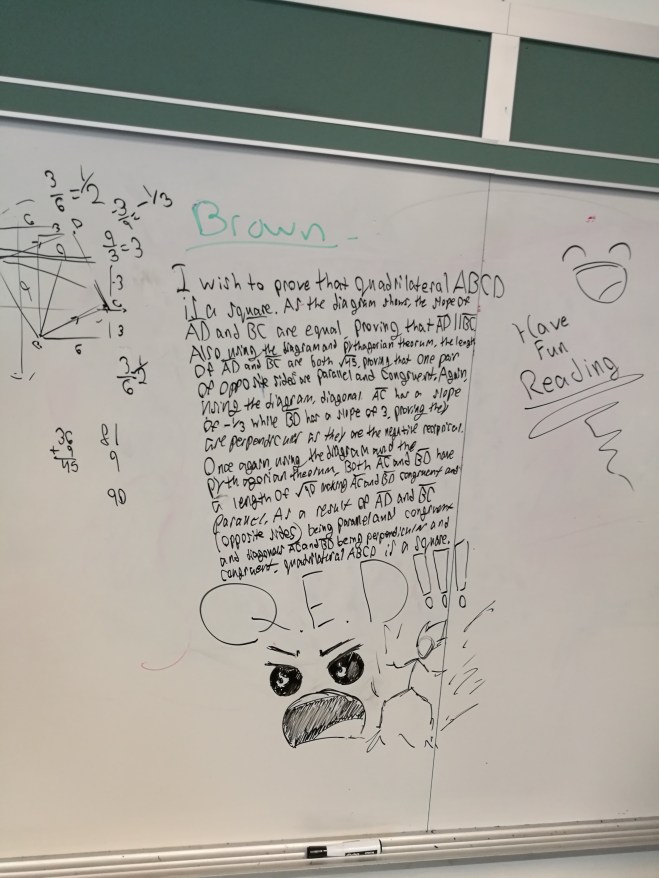 3/6 = 1/2
-3/9 = -1/3
6
3
D
9
9/3 = 3
9
-3
C
B
6
3
3/6 1/2
36
+ 9
45
81
9
90
Brown
I wish to prove that quadrilateral ABCD
is a square. As the diagram shows, the slope of
AD and BC are equal, proving that AD || BC
Also using the diagram and pythagorian theorem, the length
of AD and BC are both √45, proving that one pair
of opposite sides are parallel and congruent. Again,
using the diagram, diagonal AC has a slope
of -1/3 while BD has a slope of 3, proving they
are perpendicular as they are the negative reciprical.
Once again, using the diagram and the
pythagorian theorum, Both AC and BD have
a length of √90 making AC and BD congruent and
Paralel. As a result of AD and BC
(opposite sides) being parallel and congruent
and diagonals AC and BD being perpendicular and
congruent, quadrilateral ABCD is a square.
Q.E.D!!!
Have
Fun
Reading